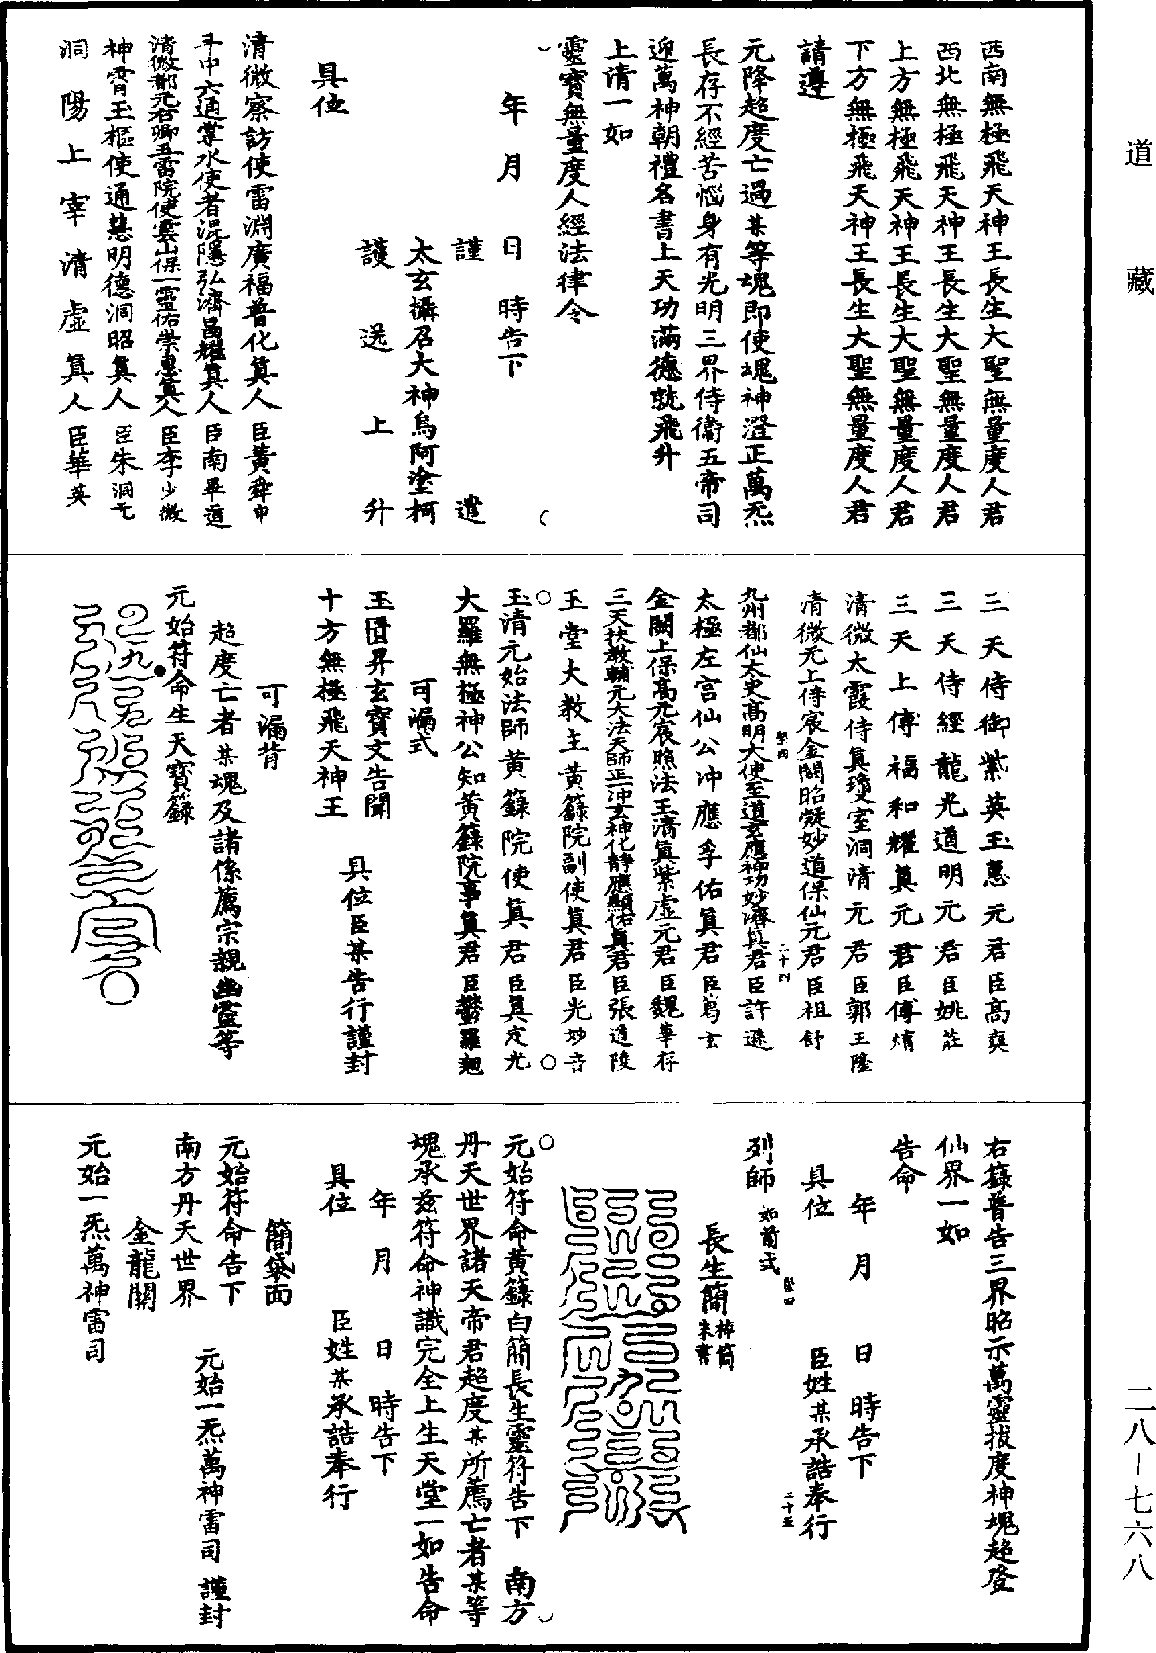 西南無極飛天神王長生大聖無量度人君
西北無極飛天神王長生大聖無量度人君
上方無極飛天神王長生大聖無量度人君
下方無極飛天神王長生大聖無量度人君
請遵
元降超度亡過某等魂即使魂神澄正萬炁
長存不經苦惱身有光明三界侍衛五帝司
迎萬神朝禮名書上天功滿德就飛升
上清一如
靈寶無量度人經法律令
年月日時告下
謹遣
太玄攝召大神烏阿塗柯
護送上升
具位
清微察訪使雷淵廣福普化真人臣黃舜申
斗中六通掌水使者混隱弘濟昌耀真人臣南畢道
清微都元右卿五雷院使雲山保一靈佑崇惠真人臣李少微
神霄玉樞使通慧明德洞昭真人臣朱洞元
洞陽上宰清虛真人臣華英
三天侍御紫英玉惠元君臣高奭
三天侍經龍光道明元君臣姚莊
三天上傅福和耀真元君臣傅熵
清微太霞侍真瓊室洞清元君臣郭玉隆
清微元上侍宸金闕昭凝妙道保仙元君臣祖舒
九州都仙太史高明大使至道玄應神功妙濟真君臣許遜
太極左宮仙公沖應孚佑真君臣葛玄
金闕上保高元宸照法王清真紫虛元君臣魏華存
三天扶教輔元大法天師正沖玄神化靜應顯佑真君臣張道陵
玉堂大教主黃籙院副使真君臣光妙音
玉清元始法師黃籙院使真君臣真定光
大羅無極神公知黃籙院事真君臣鬱羅翹
可漏式
玉清昇玄寶文告聞
十方無極飛天神王
具位臣某告行謹封
可漏背
超度亡者某魂及諸係薦宗親幽靈等
元始符命生天寶籙
右籙普告三界昭示萬靈拔度神魂超登
仙界一如
告命
年月日時告下
具位臣姓某承誥奉行
列師如前式
長生簡梓簡朱書
元始符命黃籙白簡長生靈符告下南方
丹天世界諸天帝君超度某所薦亡者某等
魂承茲符命神識完全上生天堂一如告命
年月日時告下
具位臣姓某承誥奉行
簡袋面
元始符命告下
南方丹天世界
元始一炁萬神雷司謹封
金龍關
元始一炁萬神雷司
道藏
二八－七六八